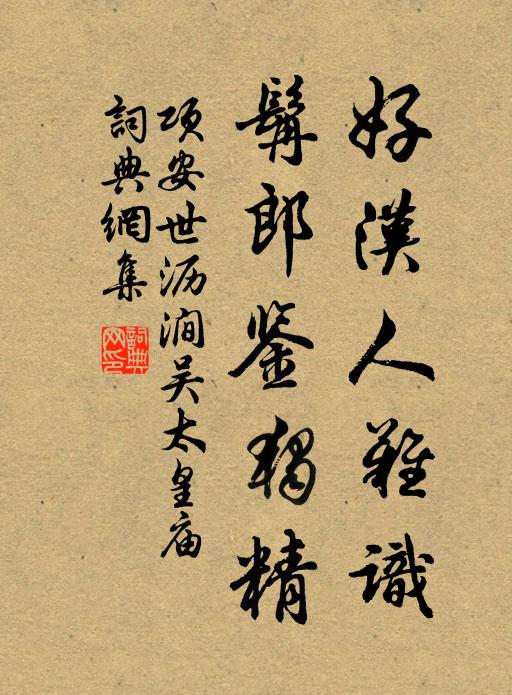 好漢人難識
髯郎鉴独精
項安世沥澗吴太皇庙
詞典網集
詞典网印